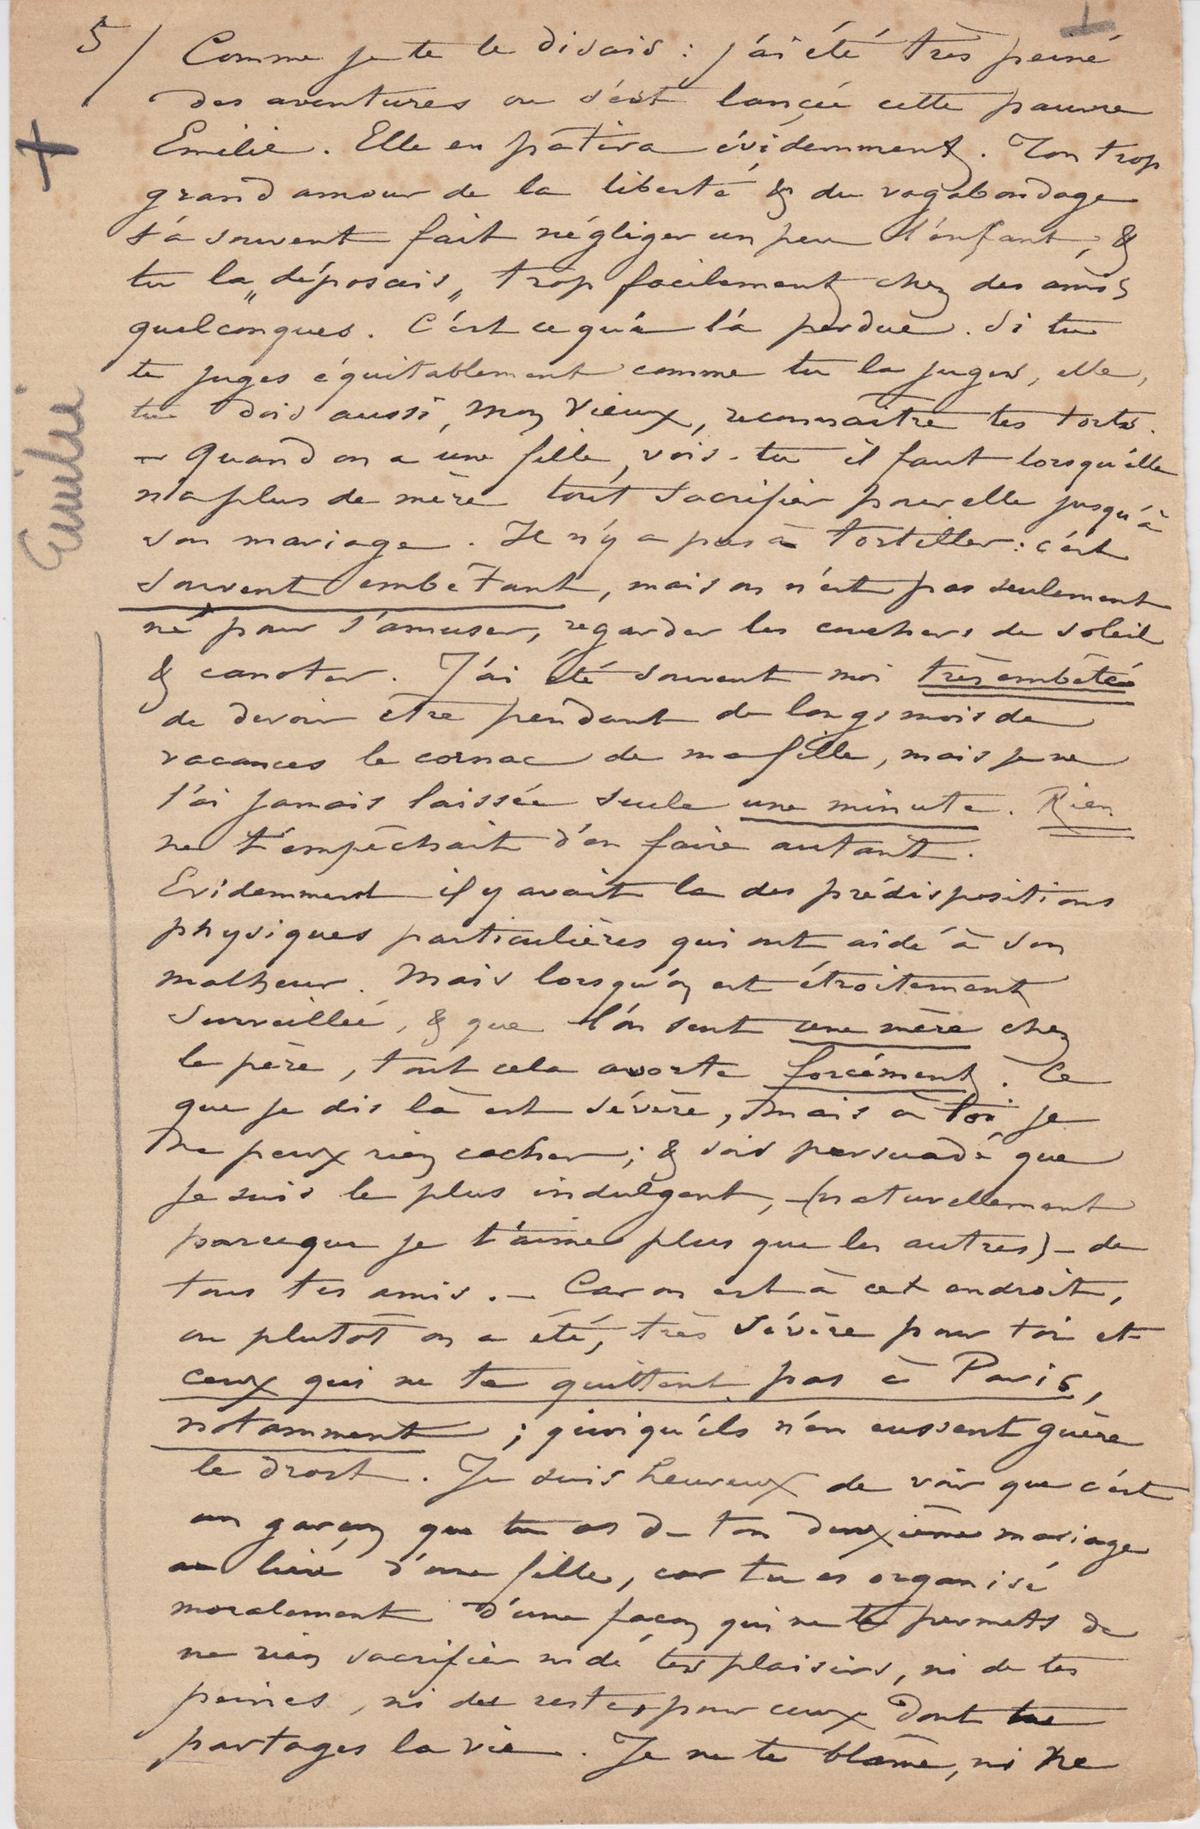 5/ Comme je te le disais : j'ai été très peiné
des aventures ou s'est lancée cette pauvre
Emilie. Elle en pâtira évidemment. Ton trop
grand amour de la liberté & du vagabondage
t'a souvent fait négliger un peu l'enfant, &
tu la „déposais„ trop facilement chez des amis
quelconques. C'est ce qui l'a perdue. Si tu
te juges équitablement comme tu la juges, elle,
tu dois aussi, mon vieux, reconnaître tes torts.
— Quand on a une fille, vois-tu il faut lorsqu'elle
n'a plus de mère tout sacrifier pour elle jusqu'à
son mariage. Il n'y a pas à tortiller : c'est
souvent embêtant, mais on n'est pas seulement
né pour s'amuser, regarder les couchers de soleil
& canoter. J'ai été souvent moi très embêté
de devoir être pendant de longs mois de
vacances le cornac de ma fille, mais je ne
l'ai jamais laissée seule une minute. Rien
ne t'empêchait d'en faire autant.
Evidemment il y avait la des prédispositions
physiques particulières qui ont aidé à son
malheur. Mais lorsqu'on est étroitement
surveillée, & que l'on sent une mère chez
le père, tout cela avorte forcément. Ce
que je dis là est sévère, mais à toi je
ne peux rien cacher ; & sois persuadé que
je suis le plus indulgent, — (naturellement
parceque je t'aime plus que les autres) — de
tous tes amis. — Car on est à cet endroit,
ou plutôt on a été, très sévère pour toi et
ceux qui ne te quittent pas à Paris,
notamment ; quoiqu'ils n'en eussent guère
le droit. Je suis heureux de voir que c'est
un garçon que tu as de ton deuxième mariage
au lieu d'une fille, car tu es organisé
moralement d'une façon qui ne te permets de
ne rien sacrifier ni de tes plaisirs, ni de tes
peines, ni du reste, pour ceux dont tu
partages la vie. Je ne te blâme, ni ne
Emilie